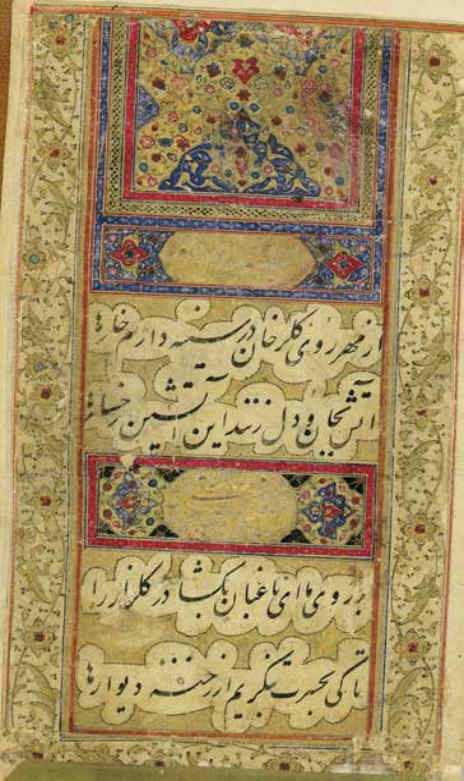 از مهر روی گلرخان در سینه دارم خارها
آتش بجان و دل زنند این آتشین رخسارها
بر روی ما ای باغبان بگشا در گلزار را
تا کی بحسرت بنگریم از رخنه دیوارها